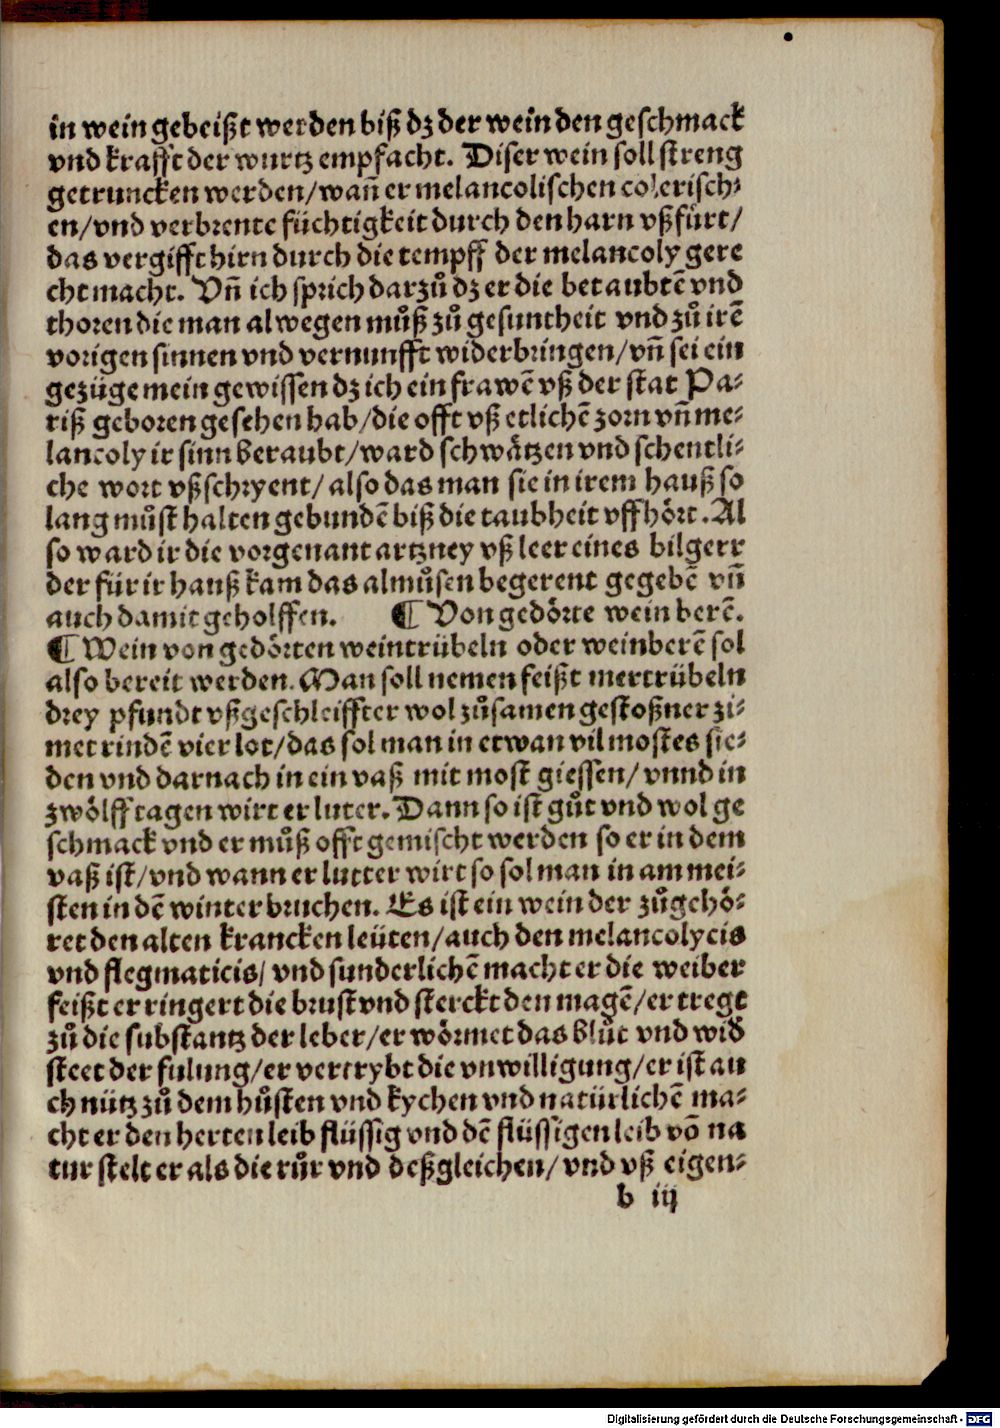 in wein gebeißt werden biß dz der wein den geschmack
vnd krafft der wurtz empfacht. Diser wein soll streng
getruncken werden/wañ er melancolischen colerisch⸗
en/vnd verbrente füchtigkeit durch den harn vßfürt/
das vergifft hirn durch die tempff der melancoly gere
cht macht. Vñ ich sprich darzů dz er die betaubtē vnd
thoren die man alwegen můß zů gesuntheit vnd zů irē
vorigen sinnen vnd vernunfft widerbringen/vñ sei ein
gezüge mein gewissen dz ich ein frawē vß der stat Pa⸗
riß geboren gesehen hab/die offt vß etlichē zorn vñ me⸗
lancoly ir sinn beraubt/ward schwåtzen vnd schentli⸗
che wort vßschryent/also das man sie in irem hauß so
lang můst halten gebundē biß die taubheit vffhört. Al
so ward ir die vorgenant artzney vß leer eines bilgerr
der für ir hauß kam das almůsen begerent gegebē vñ
auch damit geholffen. ¶ Von gedörte wein berē.
¶ Wein von gedörten weintrübeln oder weinberē sol
also bereit werden. Man soll nemen feißt mertrübeln
drey pfundt vßgeschleiffter wol zůsamen gestoßner zi⸗
met rindē vier lot/das sol man in etwan vil mostes sie⸗
den vnd darnach in ein vaß mit most giessen/vnnd in
zwölff tagen wirt er luter. Dann so ist gůt vnd wol ge
schmack vnd er můß offt gemischt werden so er in dem
vaß ist/vnd wann er lutter wirt so sol man in am mei⸗
sten in dē winter bruchen. Es ist ein wein der zůgehö⸗
ret den alten krancken leüten/auch den melancolycis
vnd flegmaticis/vnd sunderlichē macht er die weiber
feißt er ringert die brust vnd sterckt den magē/er tregt
zů die substantz der leber/er wörmet das blůt vnd wid̄
steet der fulung/er vertrybt die vnwilligung/er ist au
ch nütz zů dem hůsten vnd kychen vnd natürlichē ma⸗
cht er den herten leib flüssig vnd dē flüssigen leib vō na
tur stelt er als die růr vnd deßgleichen/vnd vß eigen⸗
b iij
Digitalisierung gefördert durch die Deutsche Forschungsgemeinschaft - DFG